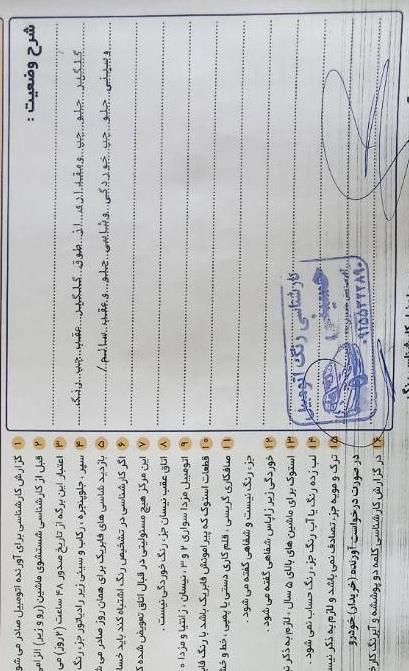 شرح وضعیت :
گلگیر جلو چپ و مقداری از طوق گلگیر عقب چپ رنگ
و سینی جلو چپ خوردگی و شاسی جلو و عقب سالم /
کارشناسی رنگ اتومبیل
۱ گزارش کارشناسی برای آورنده اتومبیل صادر می شو
۲ قبل از کارشناسی شستشوی ماشین (رو و زیر) الزام
۳ اعتبار این برگه از تاریخ صدور ۴۸ ساعت (۲ روز) می
۴ سپر ، جلوپنجره ، رکاب و سینی زیر رادیاتور جز، رنگ
۵ بازدید شاسی های فابریک برای همان روز صادر می ش
۶ اگر کارشناسی در تشخیص رنگ اشتباه کند باید خسا
۷ این مرکز هیچ مسئولیتی در قبال اتاق تعویض شده
۸ اتاق عقب نیسان جز، رنگ خوردگی نیست .
۹ اتومبیل مزدا سواری ۲ و ۳ ، نیسان ، زانتیا و مزدا
۱۰ قطعات استوک که پیرامونش فابریک باشد یا رنگ فاب
۱۱ صافکاری گریسی ، قلم کاری دستی یا پمپی ، خط و خش
جز، رنگ نیست و شفاهی گفته می شود .
۱۲ خوردگی زیر زاپاس شفاهی گفته می شود .
۱۳ استوک برای ماشین های بالای سال ، لازم به ذکر
۱۴ لب زده رنگ یا آب رنگ جز، رنگ حساب نمی شود .
۱۵ ترک و مویه جز، تصادف نمی باشد و لازم به ذکر نیس
در صورت درخواست آورنده (خریدار) خودرو
۱۶ در گزارش کارشناسی کلمه دو پوششه و ایر نگ کاری